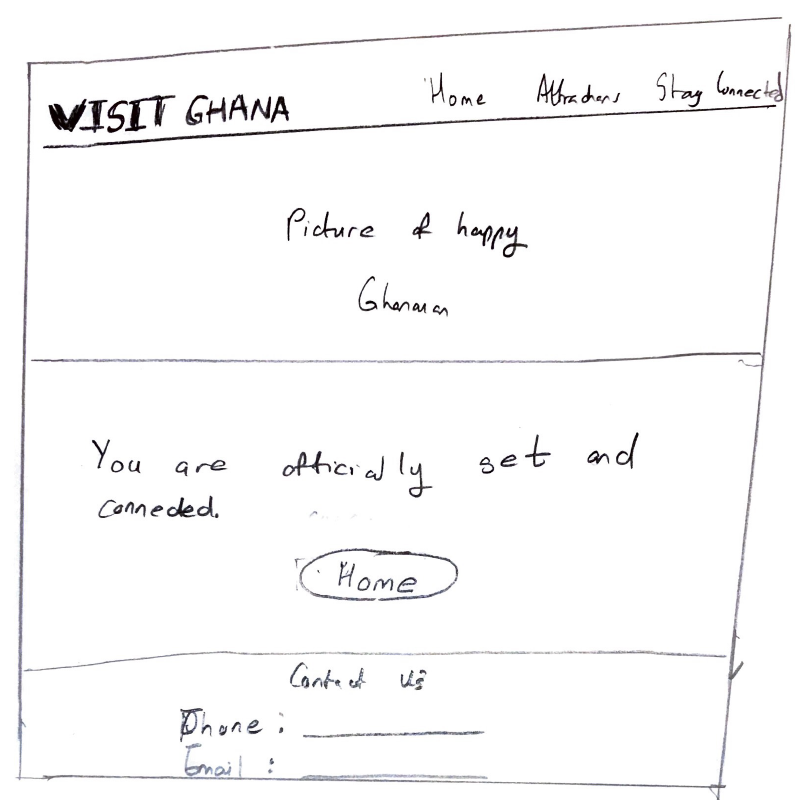 VISIT GHANA
Home Attractions Stay Connected
Picture of happy
Ghanaian
You are officially set and
connected.
Home
Contact Us
Phone :
Email :